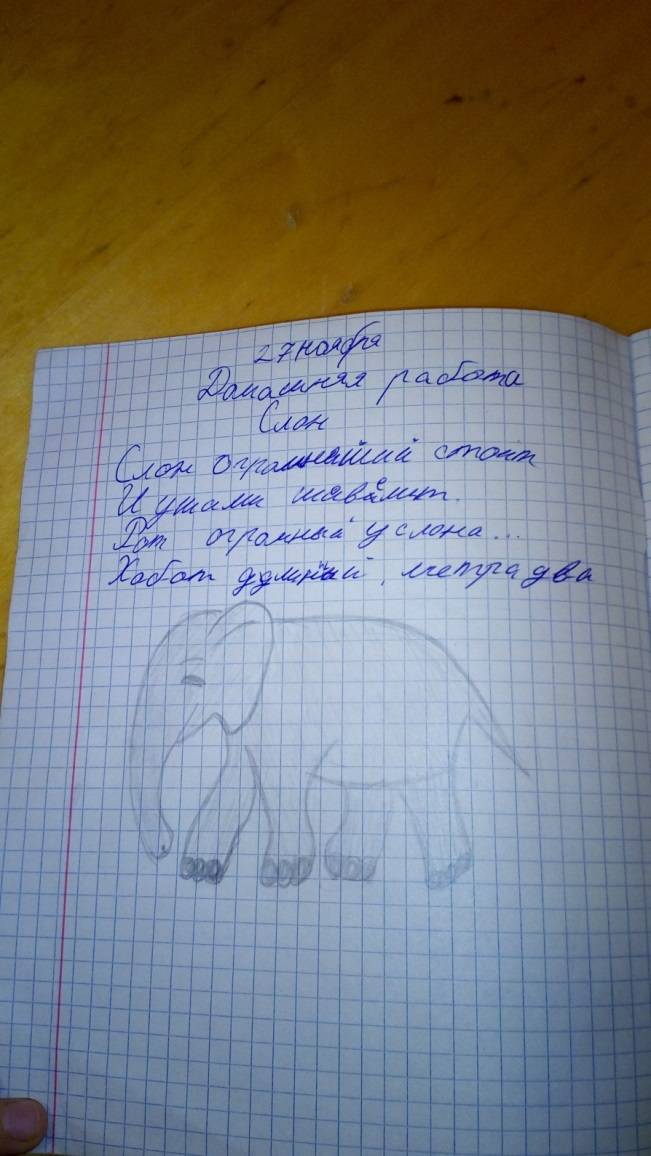 27 ноября
Домашняя работа
Слон
Слон огромнейший стоит
И ушами шевелит.
Рот огромный у слона...
Хобот длинный, метра два